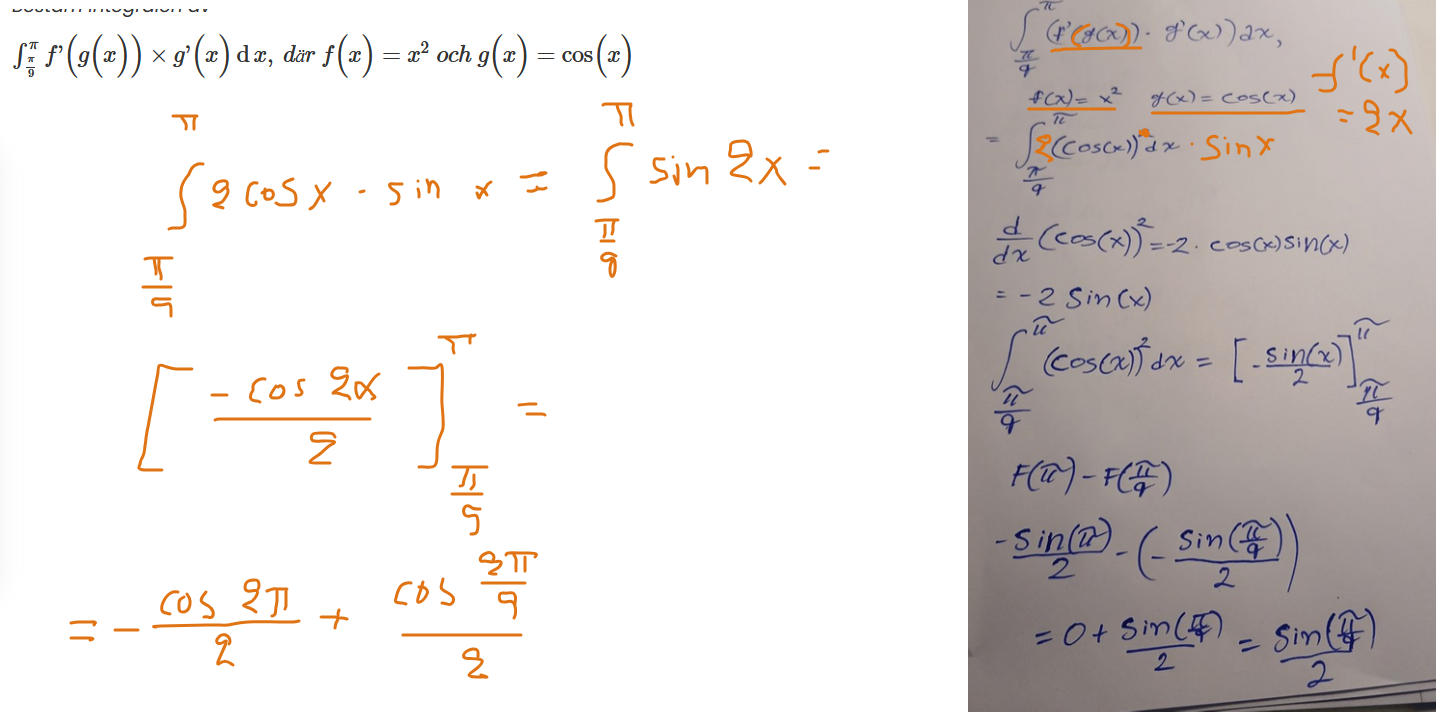 Bestäm integralen av
∫_{π/9}^{π} f'(g(x)) × g'(x) dx, där f(x) = x² och g(x) = cos(x)
∫_{π/9}^{π} 2 cos x · sin x = ∫_{π/9}^{π} sin 2x =
[ -cos 2x / 2 ]_{π/9}^{π} =
= - cos 2π / 2 + cos (2π/9) / 2
∫_{π/9}^{π} (f'(g(x)) · g'(x)) dx,
f(x) = x² g(x) = cos(x)
f'(x)
= 2x
= ∫_{π/9}^{π} 2(cos(x)) dx · sin x
d/dx (cos(x))² = -2 · cos(x) sin(x)
= -2 sin(x)
∫_{π/9}^{π} (cos(x))² dx = [ -sin(x) / 2 ]_{π/9}^{π}
F(π) - F(π/9)
-sin(π) / 2 - (- sin(π/9) / 2)
= 0 + sin(π/9) / 2 = sin(π/9) / 2